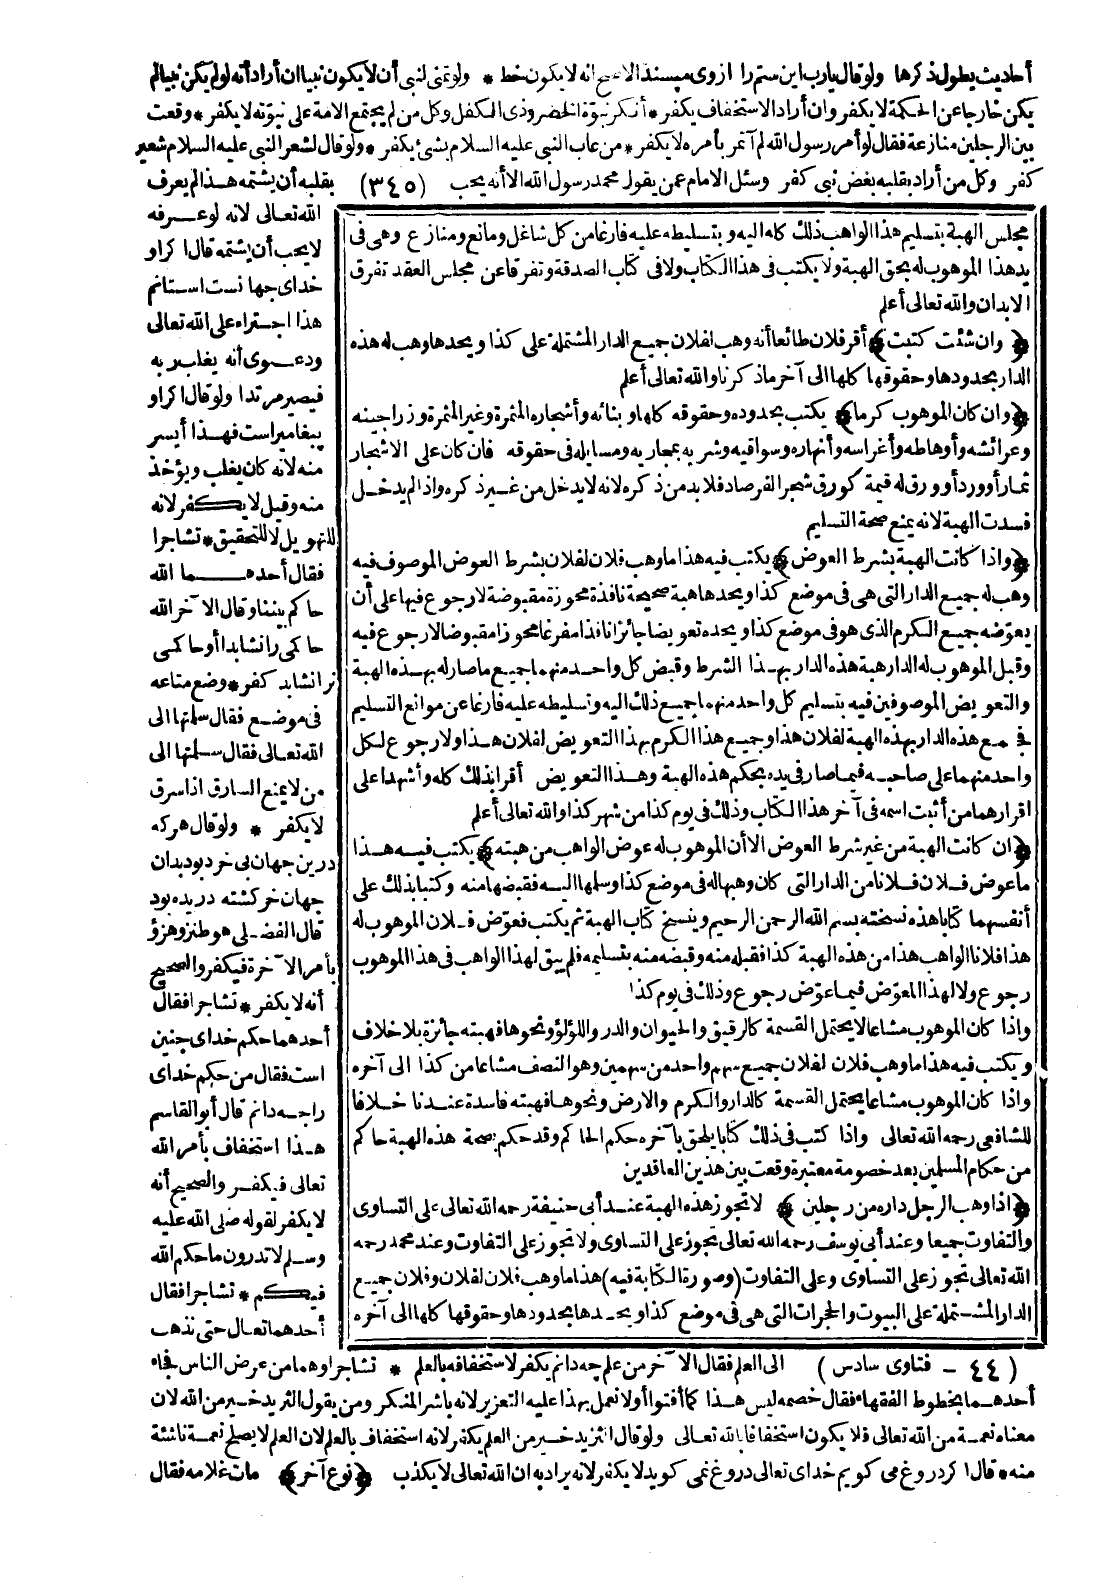 أحاديث يطول ذكرها ولو قال يارب اين ستم را از وى مپسند الاصح انه لا يكون خطأ * ولو تمنى لنبي أن لا يكون نبيا ان أراد أنه لو لم يكن نبيا لم
يكن خارجا عن الحكمة لا يكفر وان أراد الاستخفاف يكفر * أنكر نبوة الخضر وذى الكفل وكل من لم يجتمع الامة على نبوته لا يكفر * وقعت
بين الرجلين منازعة فقال لو أمر رسول الله لم آتمر بأمره لا يكفر * من عاب النبي عليه السلام بشئ يكفر * ولو قال لشعر النبي عليه السلام شعير
كفر وكل من أراد بقلبه بغض نبي كفر وسئل الامام عمن يقول محمد رسول الله الا أنه يحب (٣٤٥) بقلبه أن يشتمه هذا لم يعرف
الله تعالى لانه لو عرفه
لا يحب أن يشتمه قال اكراو
خداى جهانست استانم
هذا اجتراء على الله تعالى
ودعوى أنه يغلب به
فيصير مرتدا ولو قال اكراو
پيغاميراست فهذا أيسر
منه لانه كان يغلب ويؤخذ
منه وقيل لا يكفر لانه
للتهويل لا للتحقيق * تشاجرا
فقال أحدهما الله
حاكم بيننا وقال الآخر الله
حاكمى رانشايدا أو حاكمى
رانشايد كفر * وضع متاعه
فى موضع فقال سلمتها الى
الله تعالى فقال سلمتها الى
من لا يمنع السارق اذا سرق
لا يكفر * ولو قال هركه
درين جهان بى خرد بود بدان
جهان خر كشته دريده بود
قال الفضلى هو طنز وهزؤ
بأمر الآخرة فيكفر والصحيح
أنه لا يكفر * تشاجرا فقال
أحدهما حكم خداى چنين
است فقال من حكم خداى
راچه دانم قال أبو القاسم
هذا استخفاف بأمر الله
تعالى فيكفر والصحيح أنه
لا يكفر لقوله صلى الله عليه
وسلم لا تدرون ما حكم الله
فيكم * تشاجرا فقال
أحدهما تعال حتى نذهب
مجلس الهبة بتسليم هذا الواهب ذلك كله اليه وبتسليطه عليه فارغا من كل شاغل ومانع ومنازع وهى فى
يد هذا الموهوب له بحق الهبة ولا يكتب فى هذا الكتاب ولا فى كتاب الصدقة وتفرقا عن مجلس العقد تفرق
الابدان والله تعالى أعلم
﴿وان شئت كتبت﴾ أقر فلان طائعا أنه وهب لفلان جميع الدار المشتملة على كذا ويحدها وهب له هذه
الدار بحدودها وحقوقها كلها الى آخر ماذكرنا والله تعالى أعلم
﴿وان كان الموهوب كرما﴾ يكتب بحدوده وحقوقه كلها وبنائه وأشجاره المثمرة وغير المثمرة وزراجينه
وعرائشه وأوهاطه وأغراسه وأنهاره وسواقيه وشربه بمجاريه ومسايله فى حقوقه فان كان على الاشجار
ثمار أو ورد أو ورق له قيمة كورق شجر الفرصاد فلا بد من ذكره لانه لا يدخل من غير ذكره واذا لم يدخل
فسدت الهبة لانه يمنع صحة التسليم
﴿واذا كانت الهبة بشرط العوض﴾ يكتب فيه هذا ما وهب فلان لفلان بشرط العوض الموصوف فيه
وهب له جميع الدار التى هى فى موضع كذا ويحدها هبة صحيحة نافذة محوزة مقبوضة لا رجوع فيها على أن
يعوضه جميع الكرم الذى هو فى موضع كذا ويحده تعويضا جائزا نافذا مفرغا محوزا مقبوضا لا رجوع فيه
وقبل الموهوب له الدار هبة هذه الدار بهذا الشرط وقبض كل واحد منهما جميع ما صار له بهذه الهبة
والتعويض الموصوفين فيه بتسليم كل واحد منهما جميع ذلك اليه وتسليطه عليه فارغا عن موانع التسليم
فجميع هذه الدار بهذه الهبة لفلان هذا وجميع هذا الكرم بهذا التعويض لفلان هذا ولا رجوع لكل
واحد منهما على صاحبه فيما صار فى يده بحكم هذه الهبة وهذا التعويض أقرا بذلك كله وأشهدا على
اقرارهما من أثبت اسمه فى آخر هذا الكتاب وذلك فى يوم كذا من شهر كذا والله تعالى أعلم
﴿ان كانت الهبة من غير شرط العوض الا أن الموهوب له عوض الواهب من هبته﴾ يكتب فيه هذا
ما عوض فلان فلانا من الدار التى كان وهبها له فى موضع كذا وسلمها اليه فقبضها منه وكتبا بذلك على
أنفسهما كتابا هذه نسخته بسم الله الرحمن الرحيم وينسخ كتاب الهبة ثم يكتب فعوض فلان الموهوب له
هذا فلانا الواهب هذا من هذه الهبة كذا فقبله منه وقبضه منه بتسليمه فلم يبق لهذا الواهب فى هذا الموهوب
رجوع ولا لهذا المعوض فيما عوض رجوع وذلك فى يوم كذا
واذا كان الموهوب مشاعا لا يحتمل القسمة كالرقيق والحيوان والدر واللؤلؤ ونحوها فهبته جائزة بلا خلاف
ويكتب فيه هذا ما وهب فلان لفلان جميع سهم واحد من سهمين وهو النصف مشاعا من كذا الى آخره
واذا كان الموهوب مشاعا يحتمل القسمة كالدار والكرم والارض ونحوها فهبته فاسدة عندنا خلافا
للشافعى رحمه الله تعالى واذا كتب فى ذلك كتابا يلحق بآخره حكم الحاكم وقد حكم بصحة هذه الهبة حاكم
من حكام المسلمين بعد خصومة معتبرة وقعت بين هذين العاقدين
﴿اذا وهب الرجل داره من رجلين﴾ لا تجوز هذه الهبة عند أبى حنيفة رحمه الله تعالى على التساوى
والتفاوت جميعا وعند أبى يوسف رحمه الله تعالى تجوز على التساوى ولا تجوز على التفاوت وعند محمد رحمه
الله تعالى تجوز على التساوى وعلى التفاوت (وصورة الكتابة فيه) هذا ما وهب فلان لفلان وفلان جميع
الدار المشتملة على البيوت والحجرات التى هى فى موضع كذا ويحدها بحدودها وحقوقها كلها الى آخره
(٤٤ - فتاوى سادس) الى العلم فقال الآخر من علم چه دانم يكفر لاستخفافه بالعلم * تشاجرا وهما من عرض الناس فجاء
أحدهما بخطوط الفقهاء فقال خصمه ليس هذا كما أفتوا أو لا نعمل بهذا عليه التعزير لانه باشر المنكر ومن يقول الثريد خير من الله لان
معناه نعمة من الله تعالى فلا يكون استخفافا بالله تعالى ولو قال الثريد خير من العلم يكفر لانه استخفاف بالعلم لان العلم لا يصلح نعمة ناشئة
منه * قال اكر دروغ مى كويم خداى تعالى دروغ نمى كويد لا يكفر لانه يراد به ان الله تعالى لا يكذب ﴿نوع آخر﴾ مات غلامه فقال